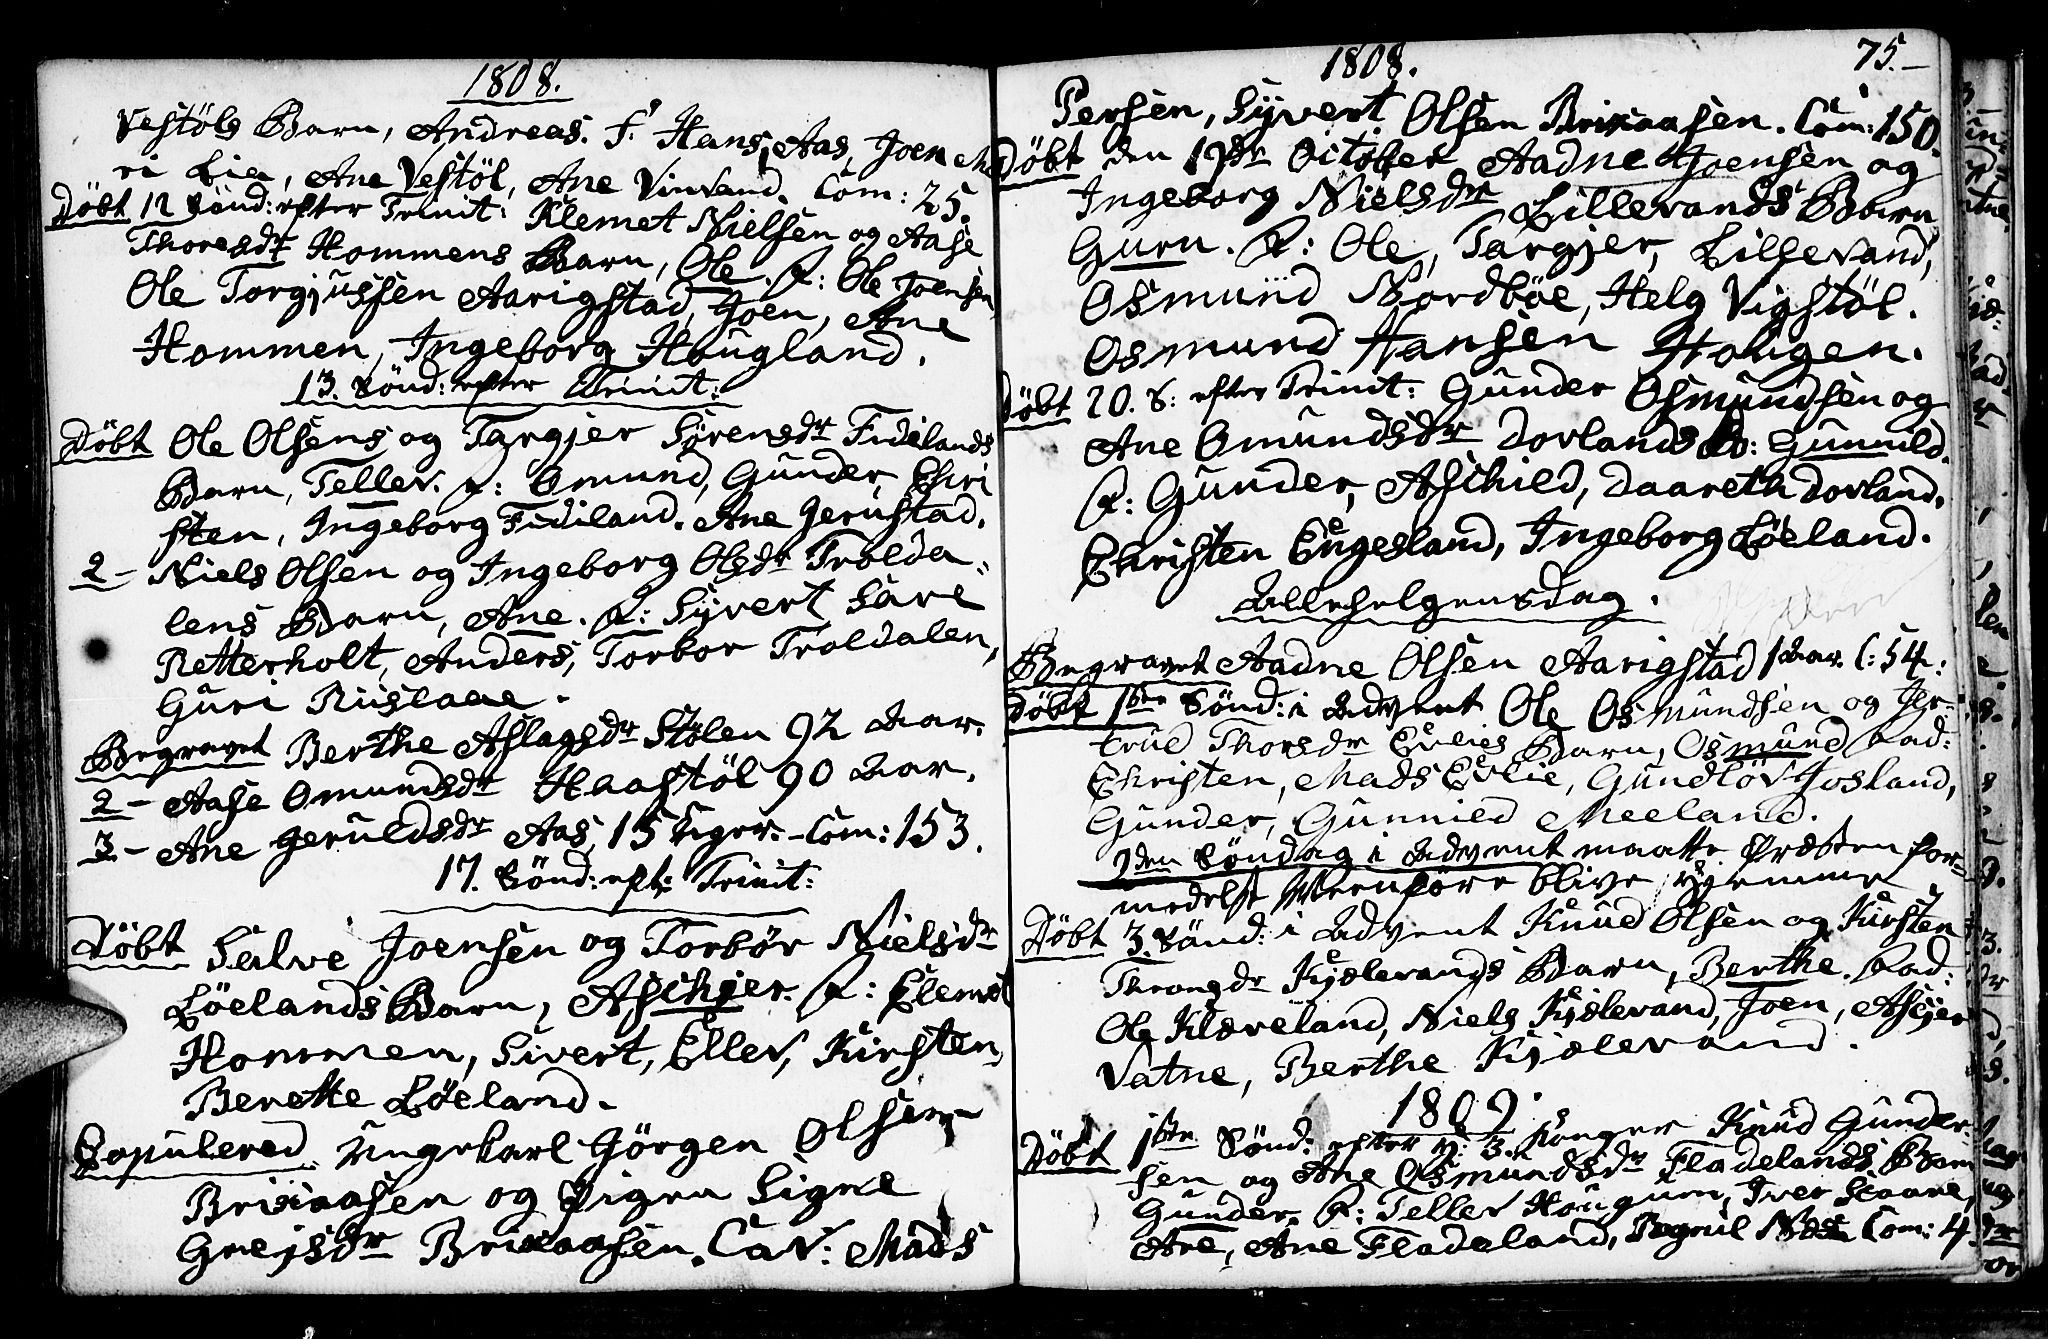 1808.
Vestöls Barn, Andreas. F. Hans, Aas, Joen
ri Lia, Ane Vestöl, Ane Vinvand. Com: 25.
Döbt 12 Sönd: efter Trinit: Klemet Nielsen og Aase
Thoresdr Hommens Barn, Ole. F: Ole Joensen,
Ole Torgjussen Aarigstad, Joen, Ane
Hommen, Ingeborg Hougland.
13. Sönd: efter Trinit:
Döbt Ole Olsens og Targjer Sörensdr Fidelands
Barn, Tellev. F: Omund, Gunder, Chri
sten, Ingeborg Fidiland. Ane Jerustad.
2 – Niels Olsen og Ingeborg Olsdr Trolda:
lens Barn, Ane. F: Syvert Save
Retterholt, Anders, Torbor Troldalen,
Guri Risland.
Begravet Berthe Aslagsdr Stölen 92 Aar.
2 – Aase Omundsdr Haastöl 90 Aar.
3 – Ane Jeruldsdr Aas, 15 Uger. – Com: 153.
17. Sönd: eft: Trinit:
Döbt Salve Joensen og Torbör Nielsdr
Löelands Barn, Aschjer. F: Clemet
Hommen, Sivert, Ellev, Kirsten,
Berette Löeland.
Copulered Ungekarl Jörgen Olsen
Brixaasen og Pigen Signe
Grejsdr Brixaasen. Cav: Mads
1808. 75. –
Persen, Syvert Olsen Brixaasen. Com: 150.
Döbt den 19de October Aadne Joensen og
Ingeborg Nielsdr Lillevands Barn
Guru. F: Ole, Targjer, Lillevand,
Osmund Nordböe, Helg Vigstöl.
Osmund Hansen Hougen.
Döbt 20. S: efter Trinit: Gunder Osmundsen og
Ane Omundsdr Dovlands B: Gunnild.
F: Gunder, Aschild, Daareth Dovland.
Christen Engesland, Ingeborg Löeland.
Allehelgensdag.
Begravet Aadne Olsen Aarigstad 1 Aar. C: 54.
Döbt 1ste Sönd: i Advent Ole Osmundsen og Jer-
trud Thorsdr Evlies Barn, Osmund Fad:
Christen, Mads Evlie, Gundlöv Josland,
Gunder, Gunnied Meeland.
2den Söndag i Advent maatte Præsten for-
medelst Meenföre blive hjemme
Döbt 3. Sönd: i Advent Knud Olsen og Kirsten
Throngdr Kjælevands Barn, Berthe. Fad:
Ole Klæveland, Niels Kjælevand, Joen, Asejer
Vatne, Berthe Kjælevand.
1809.
Döbt 1ste Sönd: efter H: 3. Konger Knud Gunder-
sen og Ane Osmundsdr Fladelands Barn
Gunder. F: Tellev Hougum, Iver Scaare,
Are, Ane Fladeland, Com: 4.